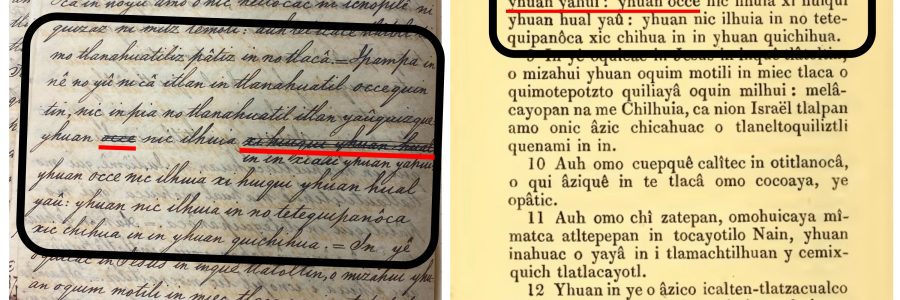 quizaz ni mitz temoti: auh
mo tlanahuatiliz pâtiz in no tlacâ. = Ipampa in
nê no yû ni câ itlan in tlanahuatil occequin
tin, nic inpia no tlanahuatil itlan yaôquizqa
yhuan occe nic ilhuia xi huiqui yhuan hual
in in xiauh yhuan yahui
yhuan occe nic ilhuia xi huiqui yhuan hual
yaû: yhuan nic ilhuia in no tetequipanôca
xic chihua in in yhuan quichihua. = In yê
oquicac in Jesus in inque tlatoltin, o mizahui yhu-
an oquim motili in miec
yhuan yahui: yhuan occe nic ilhuia xi huiqui
yhuan hual yaû: yhuan nic ilhuia in no tete-
quipanôca xic chihua in in yhuan quichihua.
9 In ye oquicac in Jesus in inque tlatoltin,
o mizahui yhuan oquim motili in miec tlaca o
quimotepotzto quiliayâ oquin milhui: melâ-
cayopan na me Chilhuia, ca nion Israël tlalpan
amo onic âzic chicahuac o tlaneltoquiliztli
quenami in in.
10 Auh omo cuepquê calîtec in otitlanocâ,
o qui âziquê in te tlacâ omo cocoaya, ye
opâtic.
11 Auh omo chî zatepan, omohuicaya mî-
matca atltepepan in tocayotilo Nain, yhuan
inahuac o yayâ in i tlamachtilhuan y cemix-
quich tlatlacayotl.
12 Yhuan in ye o âzico icalten-tlatzacualco